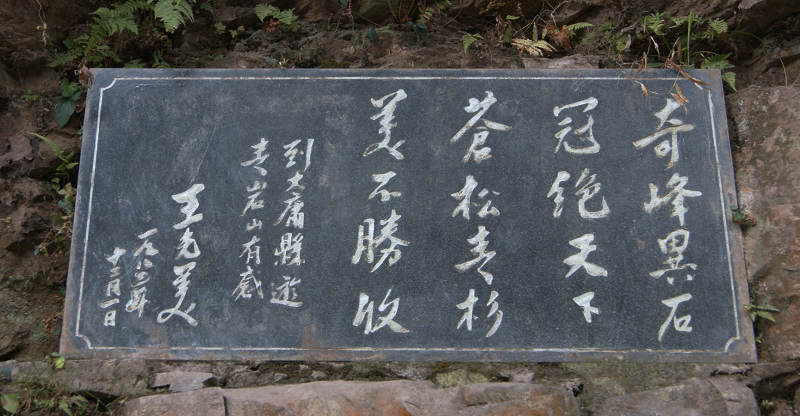 奇峰異石
冠绝天下
苍松青杉
美不勝收
到大庸縣遊
青岩山有感
王光美
一九八三年
十二月一日